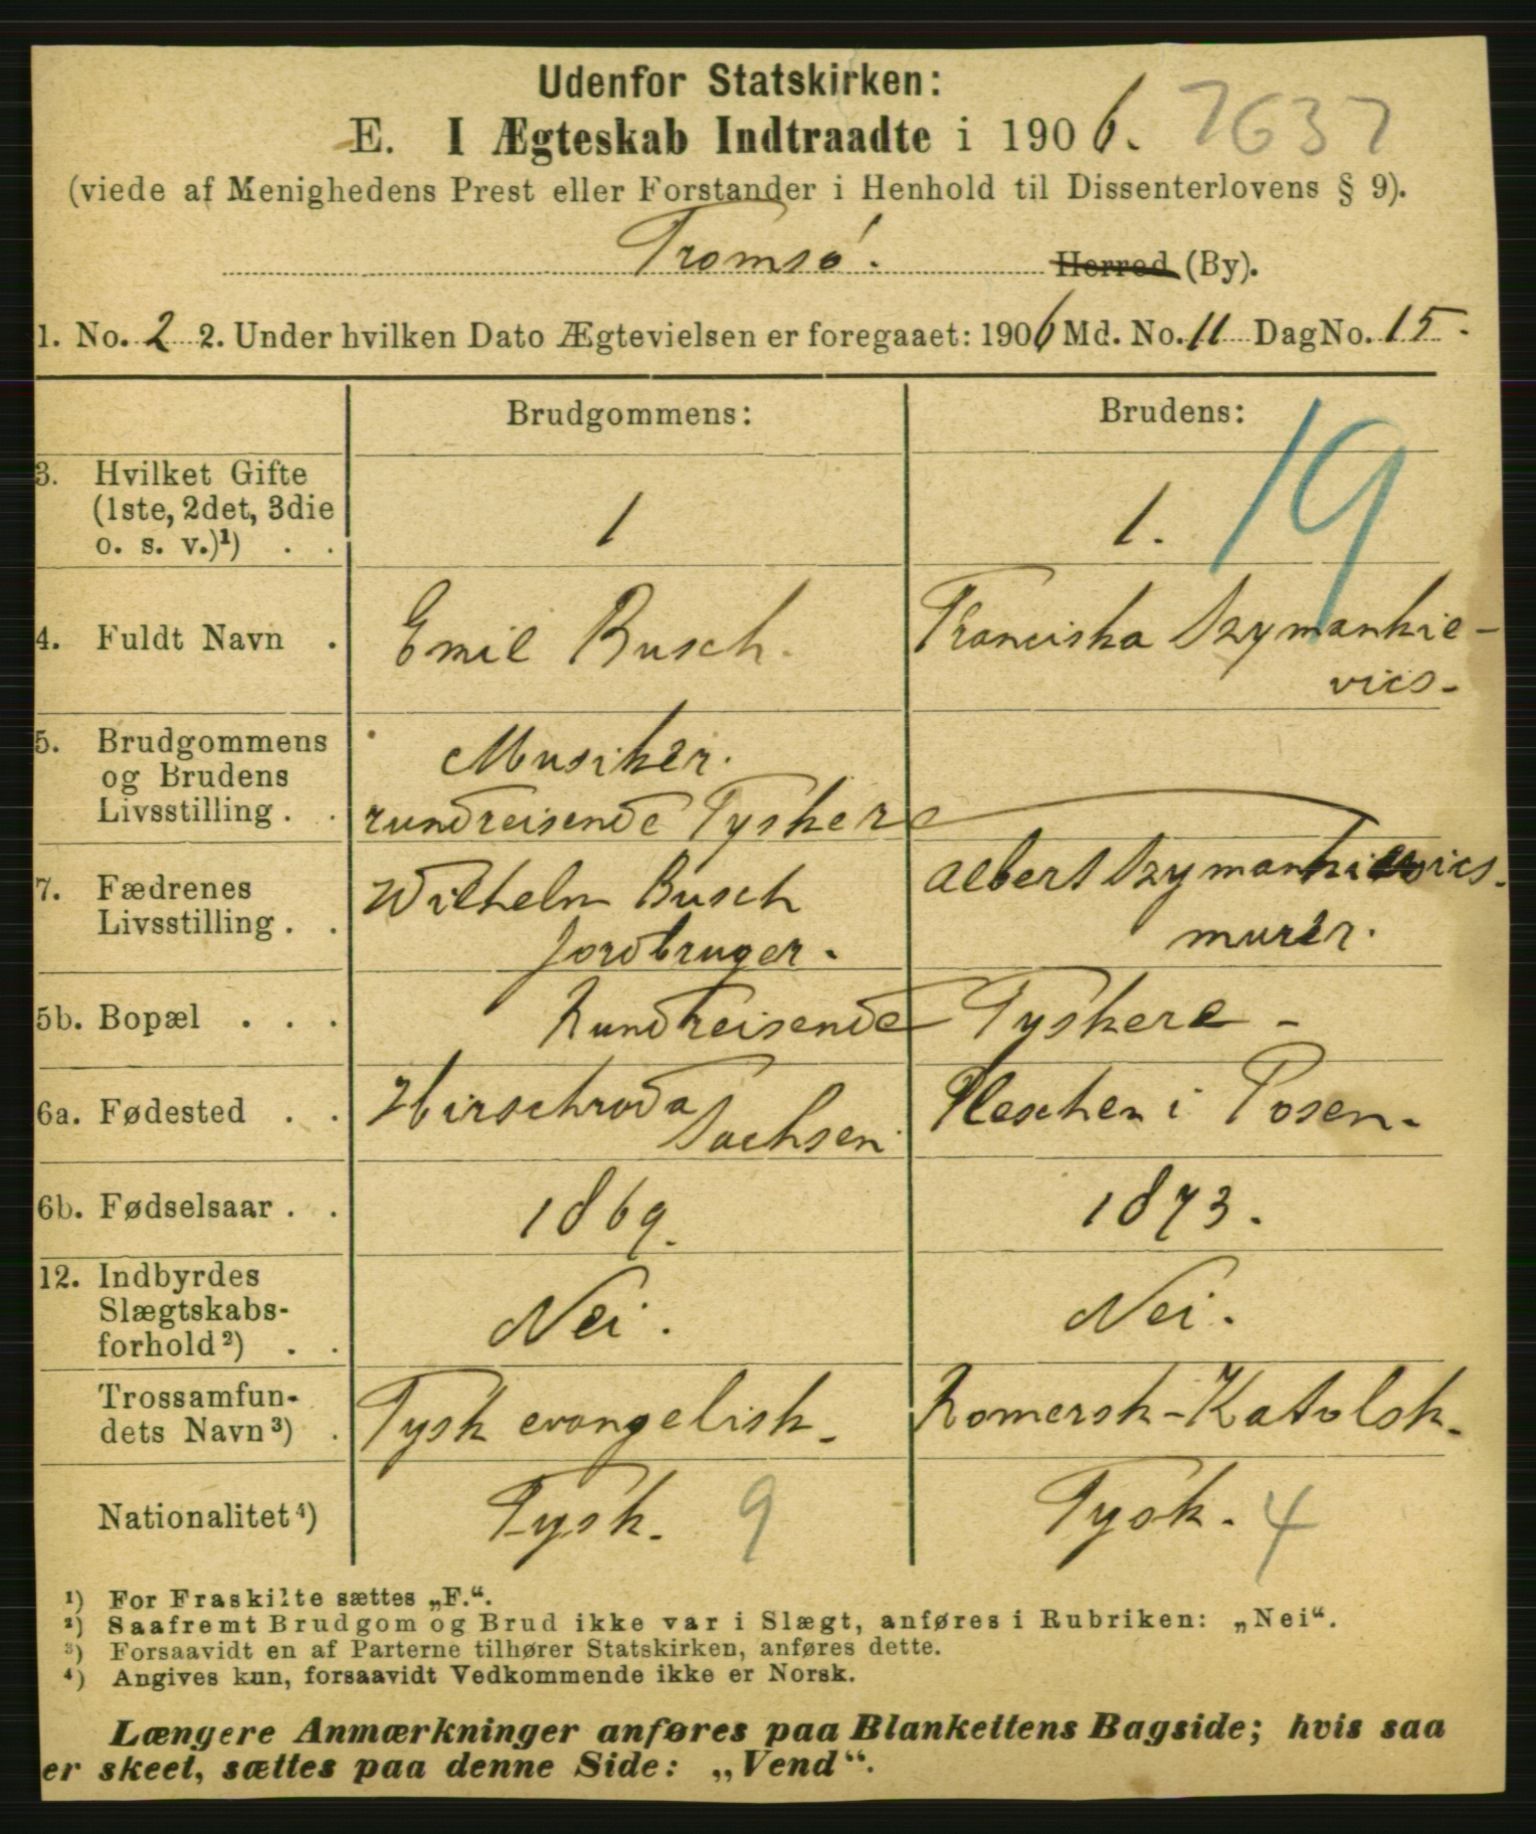 Udenfor Statskirken:
E. I Ægteskab Indtraadte i 1906. 7637
(viede af Menighedens Prest eller Forstander i Henhold til Dissenterlovens § 9).
Tromsø. Herred (By).
1. No. 2 2. Under hvilken Dato Ægtevielsen er foregaaet: 1906 Md. No. 11 Dag No. 15.
Brudgommens: Brudens:
19
3. Hvilket Gifte
(1ste, 2det, 3die
o. s. v.)¹) . .
1 1.
4. Fuldt Navn .
Emil Busch. Franciska Szymankie-
vics.
5. Brudgommens
og Brudens
Livsstilling . .
Musiker.
rundreisende Tyskere
7. Fædrenes
Livsstilling . .
Wilhelm Busch
Jordbruger.
Albert Szymankiewics.
murer.
5b. Bopæl . . .
Rundreisende Tyskere -
6a. Fødested . .
Hirschroda
Sachsen
Pleschen i Posen.
6b. Fødselsaar . .
1869. 1873.
12. Indbyrdes
Slægtskabs-
forhold ²) . .
Nei. Nei.
Trossamfun-
dets Navn ³) .
Tysk evangelisk. Romersk-Katolsk.
Nationalitet ⁴)
Tysk. 9 Tysk. 4
¹) For Fraskilte sættes „F.“.
²) Saafremt Brudgom og Brud ikke var i Slægt, anføres i Rubriken: „Nei“.
³) Forsaavidt en af Parterne tilhører Statskirken, anføres dette.
⁴) Angives kun, forsaavidt Vedkommende ikke er Norsk.
Længere Anmærkninger anføres paa Blankettens Bagside; hvis saa
er skeet, sættes paa denne Side: „Vend“.